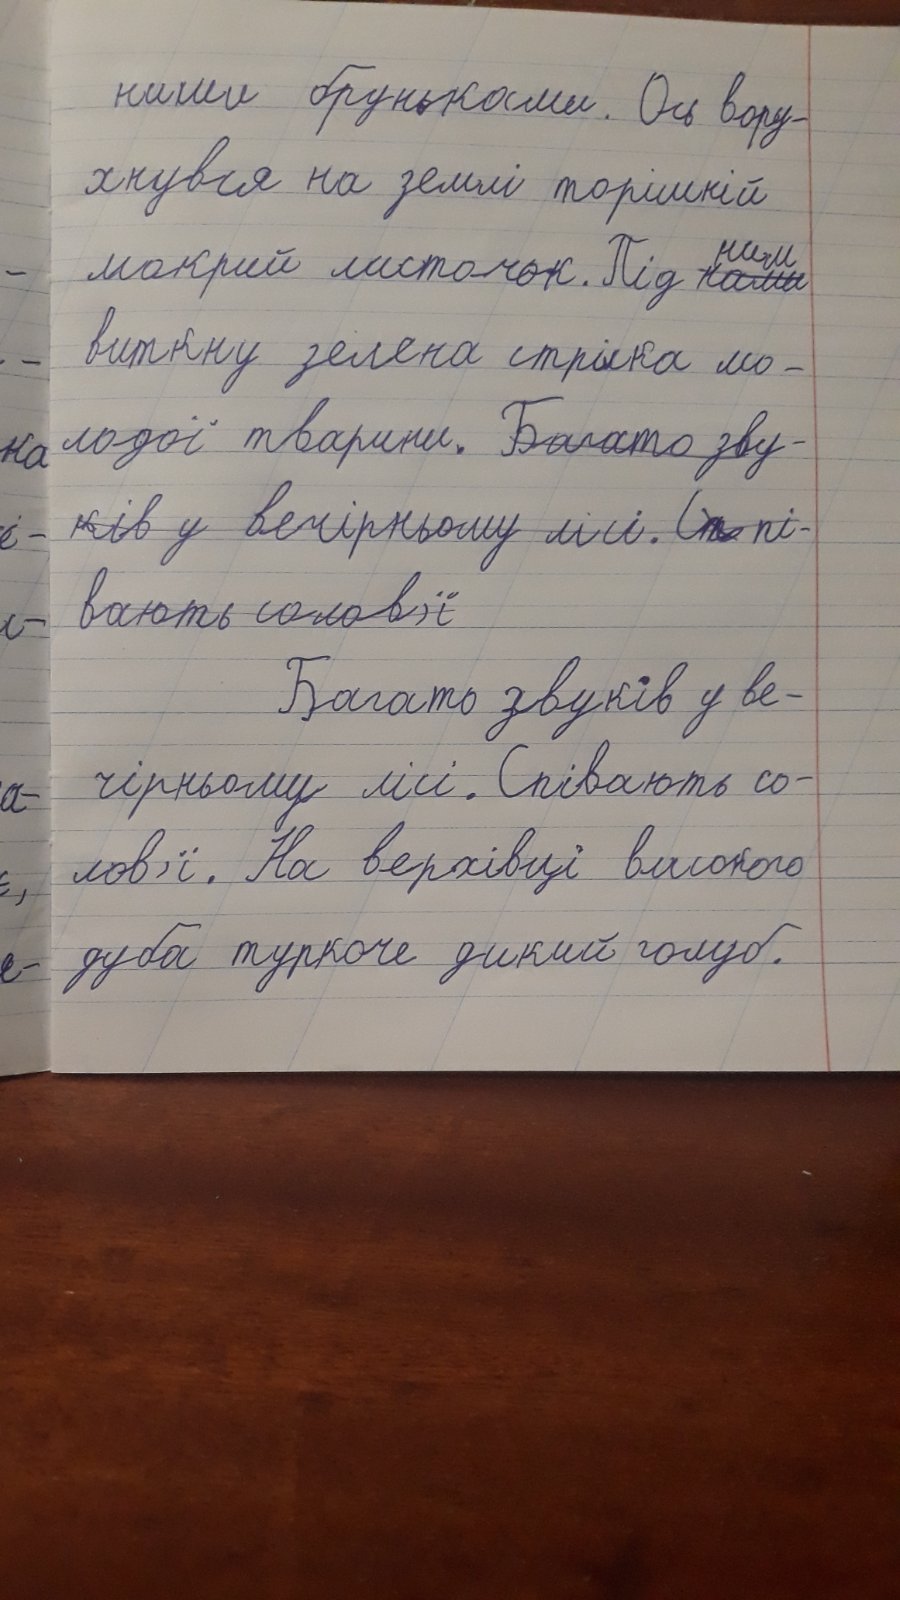 ними бруньками. Ось вору-
хнувся на землі торішній
мокрий листочок. Під ним
виткну зелена стрілка мо-
лодої тварини. Багато зву-
ків у вечірньому лісі. Спі-
вають солов'ї
Багато звуків у ве-
чірньому лісі. Співають со-
лов'ї. На верхівці високого
дуба туркоче дикий голуб.